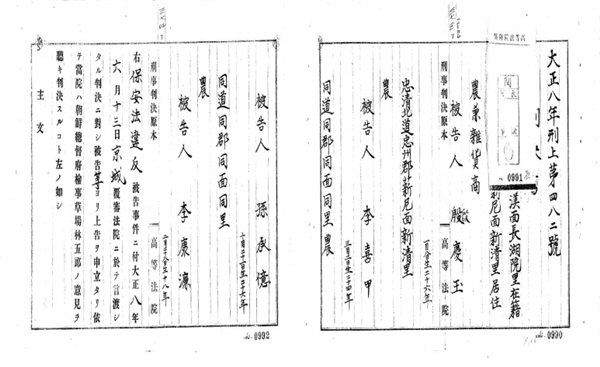 大正八年刑上第四八二號
漢面長湖院里在籍
尼面新清里居住
農兼雜貨商
被告人 殷慶玉
二十六年
刑事判決原本
高等法院
忠清北道忠州郡薪尼面新清里
農
被告人 李喜甲
二十四年
同道同郡同面同里 農
0991
0990
被告人 孫承億
二十六年
同道同郡同面同里
農
被告人 李廉濂
十八年
刑事判決原本
高等法院
右保安法違反被告事件ニ付大正八年
六月十三日京城覆審法院ニ於テ言渡シ
タル判決ニ對シ被告等ヨリ上告ヲ申立タリ依
テ當院ハ朝鮮總督府檢事草場林五郎ノ意見ヲ
聽キ判決スルコト左ノ如シ
主文
0992